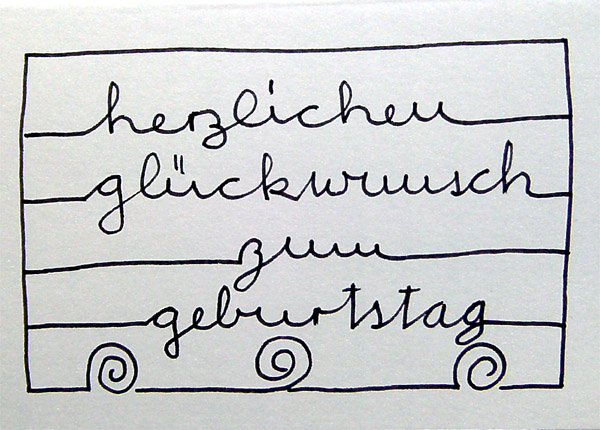 herzlichen
glückwunsch
zum
geburtstag